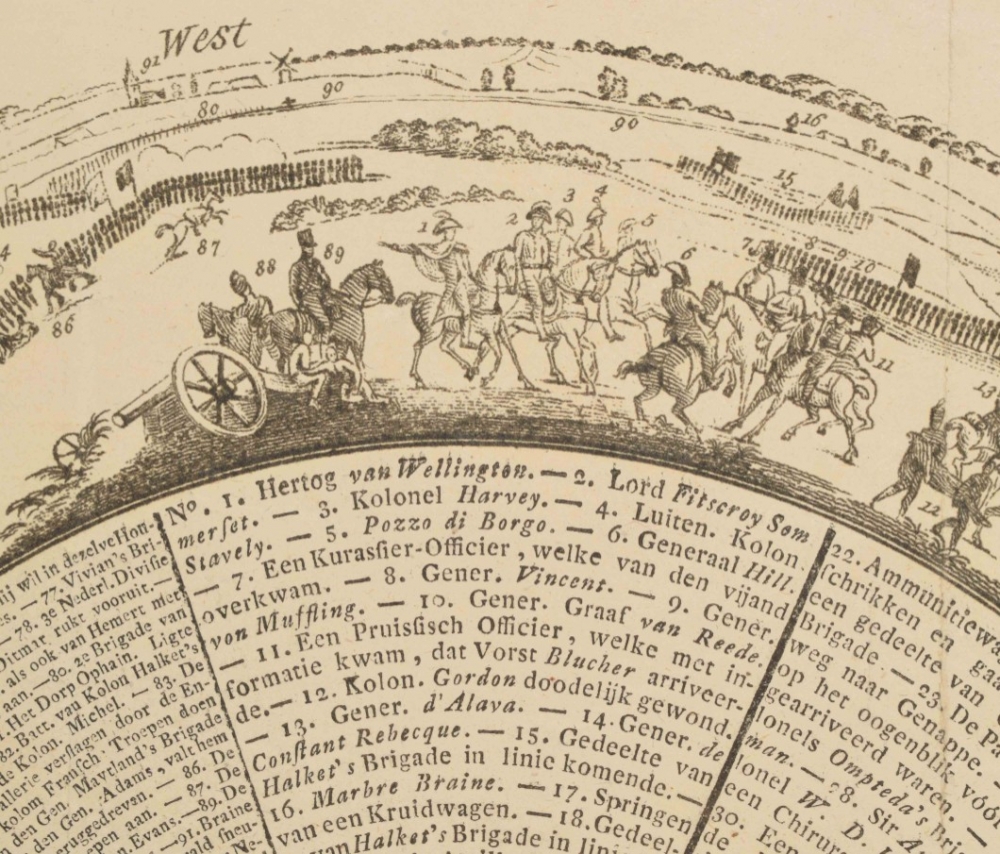 West
91
80
90
90
16
15
87
88
89
86
1
2
3
4
5
6
7
8
9
10
11
12
13
No. 1. Hertog van Wellington. — 2. Lord Fitscroy Som
merset. — 3. Kolonel Harvey. — 4. Luiten. Kolon.
Stavely. — 5. Pozzo di Borgo. — 6. Generaal Hill.
— 7. Een Kurassier-Officier, welke van den vijand
overkwam. — 8. Gener. Vincent. — 9. Gener.
von Muffling. — 10. Gener. Graaf van Reede.
— 11. Een Pruissisch Officier, welke met in-
formatie kwam, dat Vorst Blucher arriveer-
de. — 12. Kolon. Gordon doodelijk gewond.
— 13. Gener. d'Alava. — 14. Gener. de
Constant Rebecque. — 15. Gedeelte van
Halket's Brigade in linie komende. —
16. Marbre Braine. — 17. Springen
van een Kruidwagen. — 18. Gedeel-
van Halket's Brigade in linie
ij wil in dezelve Hon-
es. — 77. Vivian's Bri-
— 78. 3e Nederl. Divisie
Ditmar rukt vooruit. —
als ook van Hemert met
aan. — 80. 2e Brigade van
Het Dorp Ophain. Ligte
82. Batt. van Kolon Halket's
de Kolon. Michel. — 83. De
allerie verslagen door de En-
kolom Fransch. Troepen doen
den Gen. Maytland's Brigade
den Gen. Adams, valt hem
teruggedreven. — 86. De
epen aan. — 87. De
n. Evans. — 89. De
— 91. Braine
22. Ammunitiewa
schrikken en gaa
een gedeelte van P
Brigade. — 23. De
weg naar Genappe.
op het oogenblik voor
gearriveerd waren.
lonels Ompteda's Bri
man. — 28. Sir
lonel W. D. L
een Chirur
30. Een
de